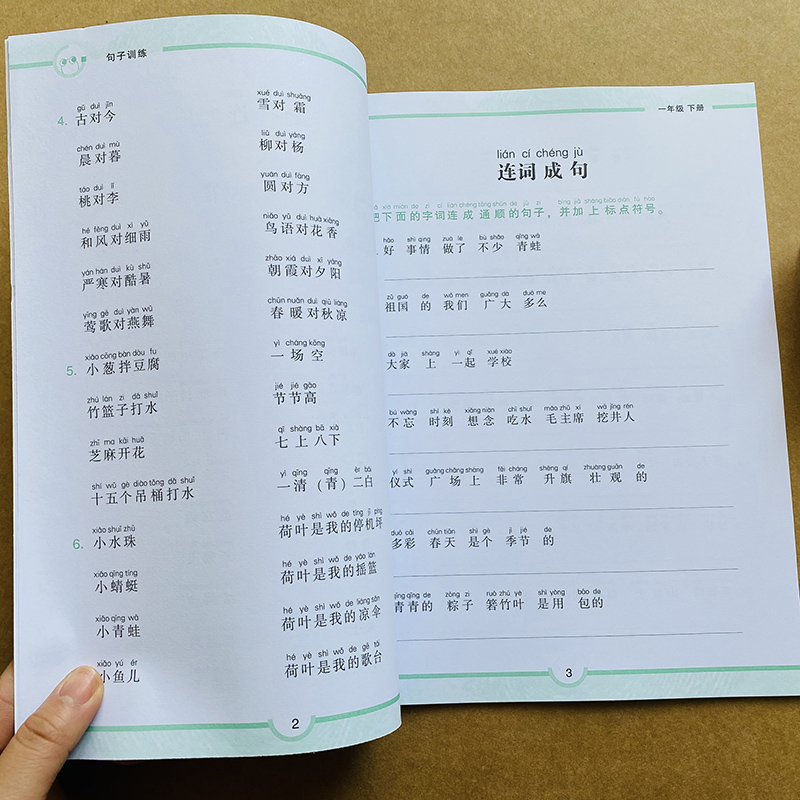 句子训练
gǔ duì jīn xuě duì shuāng
4. 古对今 雪对霜
chén duì mù liǔ duì yáng
晨对暮 柳对杨
táo duì lǐ yuán duì fāng
桃对李 圆对方
hé fēng duì xì yǔ niǎo yǔ duì huā xiāng
和风对细雨 鸟语对花香
yán hán duì kù shǔ zhāo xiá duì xī yáng
严寒对酷暑 朝霞对夕阳
yīng gē duì yàn wǔ chūn nuǎn duì qiū liáng
莺歌对燕舞 春暖对秋凉
xiǎo cōng bàn dòu fu yì cháng kōng
5. 小葱拌豆腐 一场空
zhú lán zi dǎ shuǐ jié jié gāo
竹篮子打水 节节高
zhī ma kāi huā qī shàng bā xià
芝麻开花 七上八下
shí wǔ gè diào tǒng dǎ shuǐ yì qīng qīng èr bái
十五个吊桶打水 一清(青)二白
xiǎo shuǐ zhū hé yè shì wǒ de tíng jī píng
6. 小水珠 荷叶是我的停机坪
xiǎo qīng tíng hé yè shì wǒ de yáo lán
小蜻蜓 荷叶是我的摇篮
xiǎo qīng wā hé yè shì wǒ de liáng sǎn
小青蛙 荷叶是我的凉伞
xiǎo yú ér hé yè shì wǒ de gē tái
小鱼儿 荷叶是我的歌台
2
一年级 下册
lián cí chéng jù
连词成句
xià miàn de zì cí lián chéng tōng shùn de jù zi bìng jiā shàng biāo diǎn fú hào
把下面的字词连成通顺的句子，并加上标点符号。
hǎo shì qing zuò le bù shǎo qīng wā
好 事情 做了 不少 青蛙
zǔ guó de wǒ men guǎng dà duō me
祖国 的 我们 广大 多么
dà jiā shàng yì qǐ xué xiào
大家 上 一起 学校
bú wàng shí kè xiǎng niàn chī shuǐ máo zhǔ xí wā jǐng rén
不忘 时刻 想念 吃水 毛主席 挖井人
yí shì guǎng chǎng shàng fēi cháng shēng qí zhuàng guān de
仪式 广场上 非常 升旗 壮观 的
duō cǎi chūn tiān shì gè jì jié de
多彩 春天 是个 季节 的
qīng qīng de zòng zi ruò zhú yè shì yòng bāo de
青青的 粽子 箬竹叶 是用 包的
3